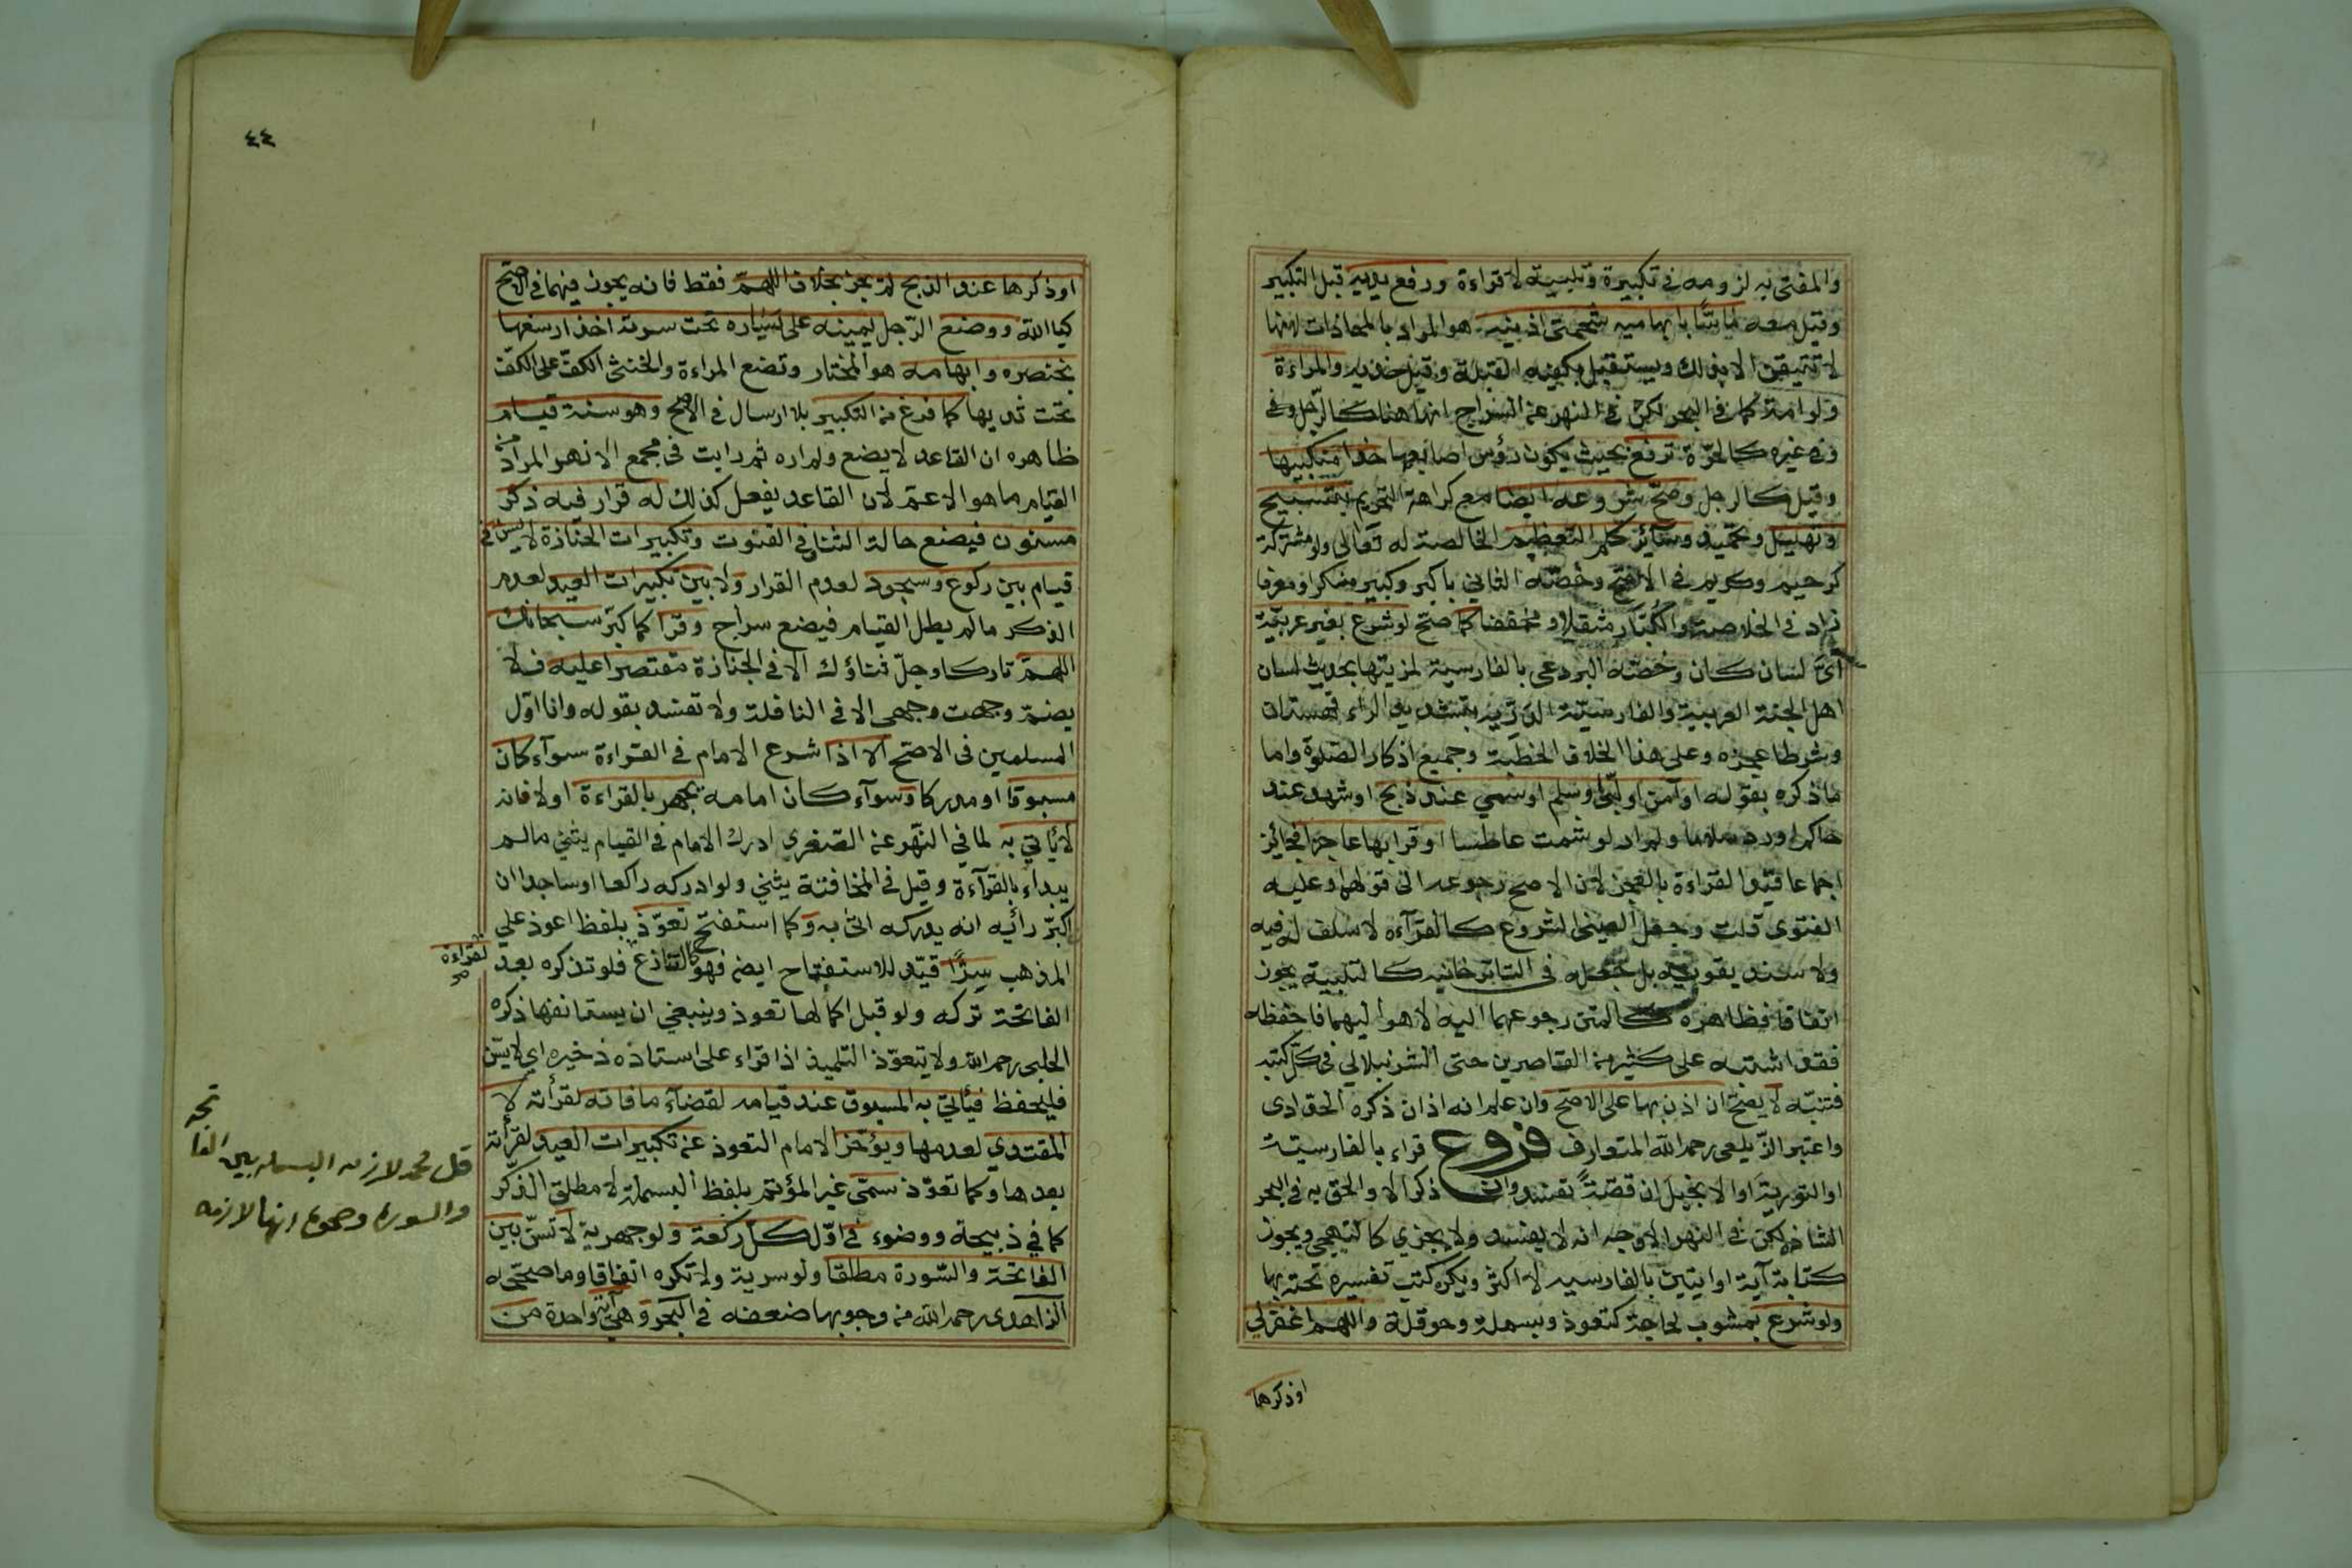 والمفتى به لزومه في تكبيرة وتلبية لا قراءة ورفع يديه قبل التكبير
وقيل معه ماسّا بابهاميه شحمتى اذنيه هو المراد بالمحاذات لانها
لا تتيقن الا بذلك ويستقبل بكفيه القبلة وقيل خديه والمراءة
ولو امة كما فى البحر لكن فى النهر عن السراج انها هنا كالرجل وفى
وفى غيره كالحرّة ترفع بحيث يكون رؤس اصابعها حذا منكبيها
وقيل كالرجل وصحّ شروعه ايضا مع كراهة التحريم بتسبيح
وتهليل وتحميد وسآئر كلم التعظيم الخالصة له تعالى ولو مشتركة
كرحيم وكريم فى الاصح وخصّه الثاني باكبر وكبير منكرا ومعرفا
زاد فى الخلاصة والكبّار مثقلا ومخففا كما صحّ لو شرع بغير عربيّة
اىّ لسان كان وخصّه البردعى بالفارسية لمزيتها بحديث لسان
اهل الجنة العربية والفارسيّة الدرّية بتشديد الراء قهستانى
وشرطا عجزه وعلى هذا الخلاف الخطبة وجميع اذكار الصلوة واما
ما ذكره بقوله او آمن او لبّى او سلم او سمي عند ذبح او شهد عند
حاكم او رد سلاما ولم ار لو شمت عاطسا او قرا بها عاجزا فجائز
اجماعا قيّد القراءة بالعجز لان الاصح رجوعه الى قولهما وعليه
الفتوى قلت وجعل العينى الشروع كالقرآءة لا سلف له فيه
ولا سند يقويه بل جعله فى التاترخانيه كالتلبية يجوز
اتفاقا فظاهره كالمتن رجوعهما اليه لا هو اليهما فاحفظه
فقد اشتبه على كثير من القاصرين حتى الشرنبلالي فى كل كتبه
فتنبّه لا يصحّ ان اذن بها على الاصح وان علم انه اذان ذكره الحدادى
واعتبر الزّيلعى رحمه الله المتعارف فروع قراء بالفارسيّة
او التورية او الانجيل ان قصّة تفسد وان ذكرا لا والحق به فى البحر
الشاذ لكن فى النهر الاوجه انه لا يفسد ولا يجزي كالتهجي ويجوز
كتابة آية او ايتين بالفارسيه لا اكثر ويكره كتب تفسيره تحته بها
ولو شرع بمشوب لحاجة كتعوذ وبسملة وحوقلة واللهم اغفرلي
او ذكرها
٤٤
او ذكرها عند الذبح لم يجز بخلاف اللهمّ فقط فانه يجوز فيهما فى الاصح
كيا الله ووضع الرّجل يمينه على يساره تحت سرته اخذ ارسغها
بخنصره وابهامه هو المختار وتضع المراءة والخنثى الكفّ على الكفّ
تحت ثديها كما فرغ من التكبير بلا ارسال فى الاصح وهو سنة قيام
ظاهره ان القاعد لا يضع ولم اره ثم رايت فى مجمع الانهر المراد من
القيام ما هو الاعمّ لان القاعد يفعل كذلك له قرار فيه ذكر
مسنون فيضع حالة الثناء وفي القنوت وتكبيرات الجنازة لا يسنّ فى
قيام بين ركوع وسجود لعدم القرار ولا بين تكبيرات العيد لعدم
الذكر مالم يطل القيام فيضع سراج وقرا كما كبّر سبحانك
اللهمّ تاركا وجلّ ثناؤك الا فى الجنازة مقتصرا عليه فلا
يضمّ وجهت وجهى الا فى النافلة ولا تفسد بقوله وانا اوّل
المسلمين فى الاصحّ الا اذا شرع الامام فى القراءة سوآء كان
مسبوقا او مدركا وسوآء كان امامه يجهر بالقراءة اولا فانه
لا يأتي به لما في النّهر عن الصّغرى ادرك الامام فى القيام يثني مالم
يبداء بالقرآءة وقيل فى المخافتة يثني ولو ادركه راكعا او ساجدا ان
اكبر رأيه انه يدركه اتى به وكما استفتح تعوّذ بلفظ اعوذ علي
المذهب سرًّا قيّد للاستفتاح ايضا فهو كالتنازع فلو تذكره بعد
لقراءة صح
الفاتحة تركه ولو قبل اكمالها تعوذ وينبغي ان يستانفها ذكره
الحلبى رحمه الله ولا يتعوّذ التلميذ اذا قراء على استاذه ذخيره اي لا يسّن
فليحفظ فيأتي به المسبوق عند قيامه لقضآء ما فاته لقرأته لا
المقتدي لعدمها ويؤخّر الامام التعوذ عن تكبيرات العيد لقرأته
بعدها وكما تعوّذ سمّى غير المؤتم بلفظ البسملة لا مطلق الذّكر
كما في ذبيحة ووضوء فى اوّل كل ركعة ولو جهرية لا تسنّ بين
الفاتحة والسّورة مطلقا ولو سرية ولا تكره اتفاقا وما صححّه
الزاهدى رحمه الله من وجوبها ضعفه فى البحر وهى آية واحدة من
والسوره